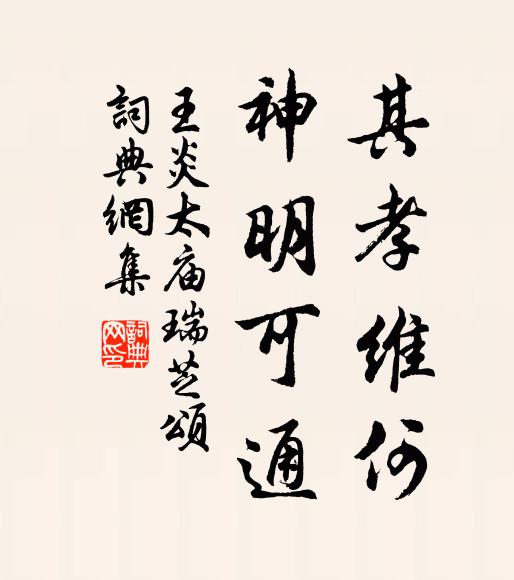 其孝維何
神明可通
王炎太庙瑞芝頌
詞典網集
詞典網印